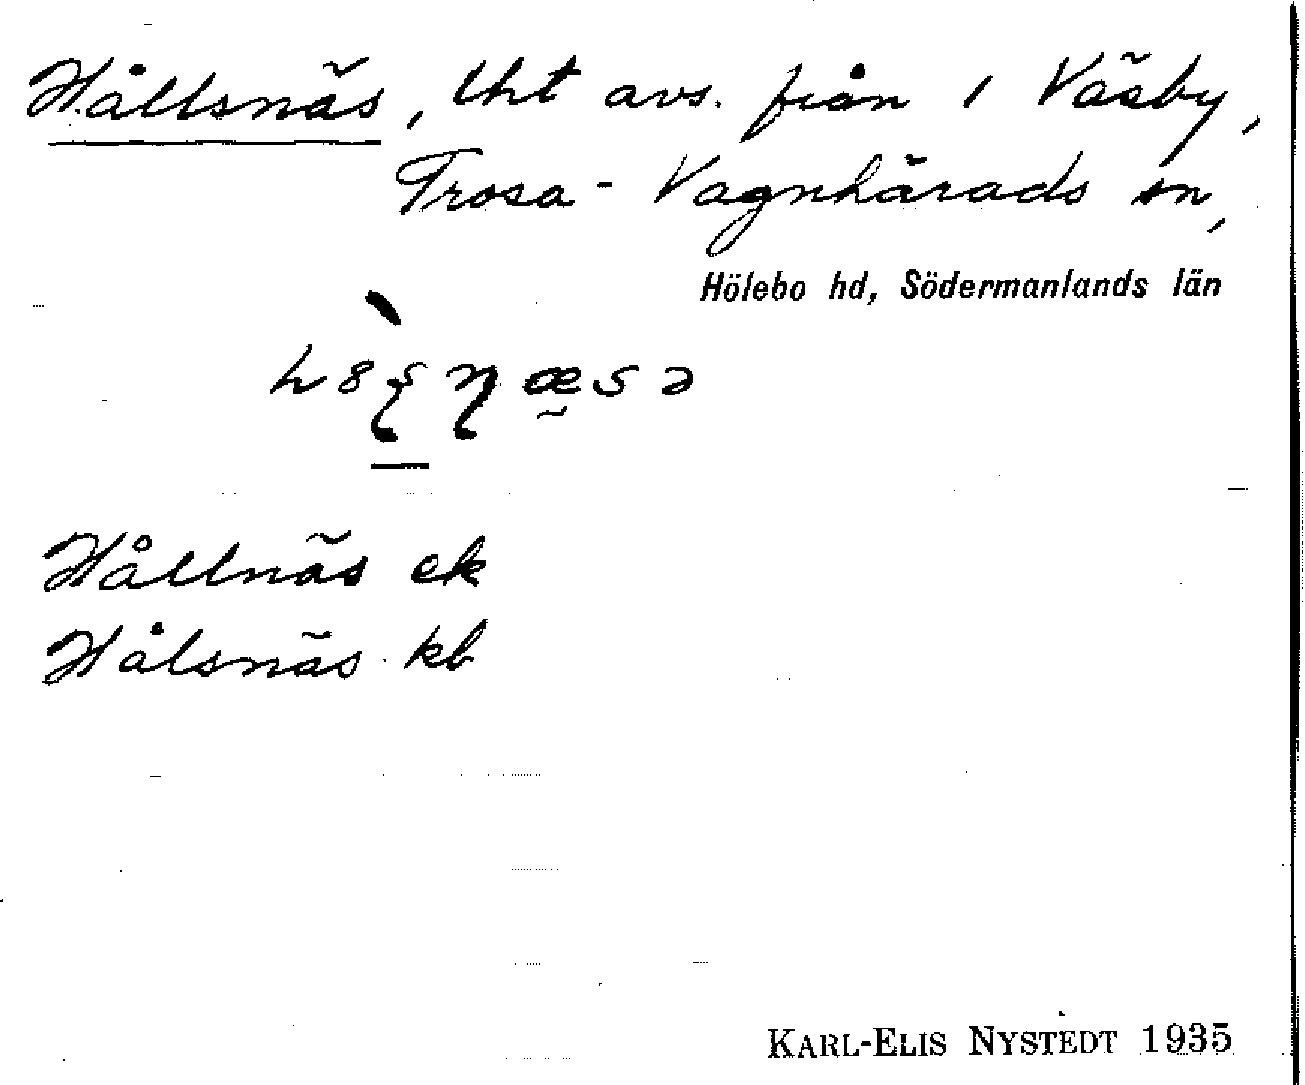 Hållsnäs, lht avs. från 1 Väsby,
Trosa-Vagnhärads sn,
Hölebo hd, Södermanlands län
Hållnäs ek
Hålsnäs kb
KARL-ELIS NYSTEDT 1935